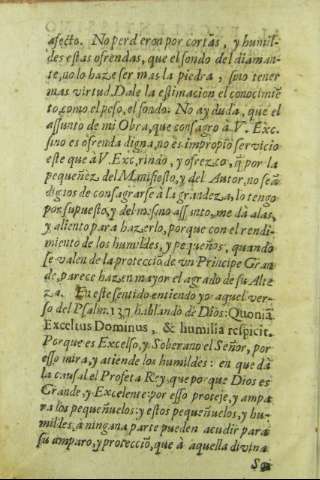 afecto. No perderon por cortas, y humil-
des estas ofrendas, que el fondo del diaman-
te, no lo haze ser mas la piedra, sino tener
mas virtud. Dale la estimacion el conocimiẽ
to, como el peso, el fondo. No ay duda, que el
assunto de mi Obra, que consagro à V. Exc.
sino es ofrenda digna, no es impropio servicio
este que à V. Exc. rindo, y ofrezco, q̃ por la
pequeñez del Manifiesto, y del Autor, no seã
dignos de consagrarse à la grandeza, lo tengo
por supuesto, y del mismo assunto, me dà alas,
y aliento para hazerlo, porque con el rendi-
miento de los humildes, y pequeños, quando
se valen de la proteccion de vn Principe Gran
de, parece hazen mayor el agrado de su Alte
za. En este sentido entiendo yo aquel ver-
so del Psalm. 137. hablando de Dios: Quoniã
Excelsus Dominus, & humilia respicit.
Porque es Excelso, y Soberano el Señor, por
esso mira, y atiende los humildes: en que dà
la causal el Profeta Rey, que porque Dios es
Grande, y Excelente: por esso proteje, y ampa
ra los pequeñuelos: y estos pequeñuelos, y hu-
mildes, à ninguna parte pueden acudir para
su amparo, y protecciõ, que à aquella divina